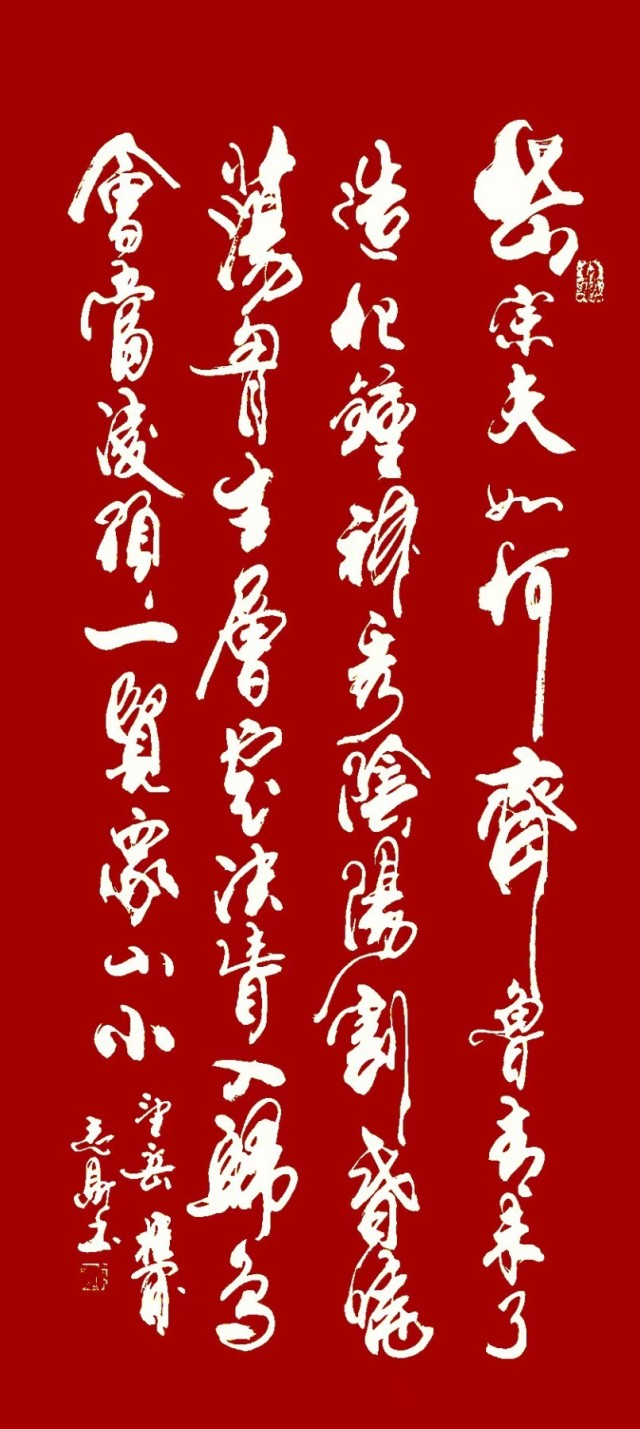 岱宗夫如何齊魯青未了
造化鍾神秀陰陽割昏曉
蕩胷生層雲決眥入歸鳥
會當凌絕頂一覽眾山小
望岳